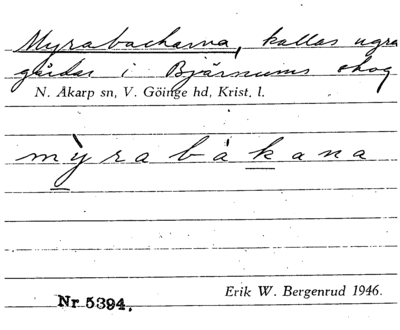 Myrabackarna, kallas några
gårdar i Bjärnums skog
N. Åkarp sn, V. Göinge hd, Krist. l.
mỳrabàkana
Erik W. Bergenrud 1946.
Nr 5394.